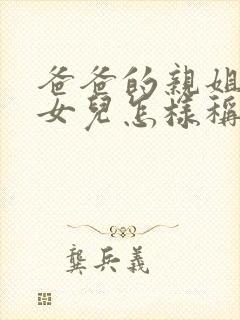 爸爸的親姐
女兒怎樣稱
龔兵義